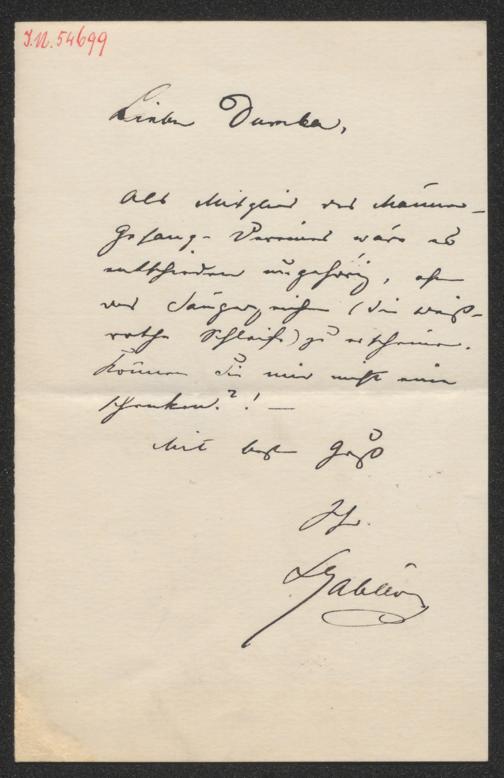 I.N. 54699
Lieber Dumba,
Als Mitglied des Männer-
Gesang-Vereines wäre es
entschieden ungehörig, ohne
das Sängerzeichen (die weiß-
rothe Schleife) zu erscheinen.
Können Sie mir nicht eine
schenken?! —
Mit best Gruß
Ihr
LGabillon